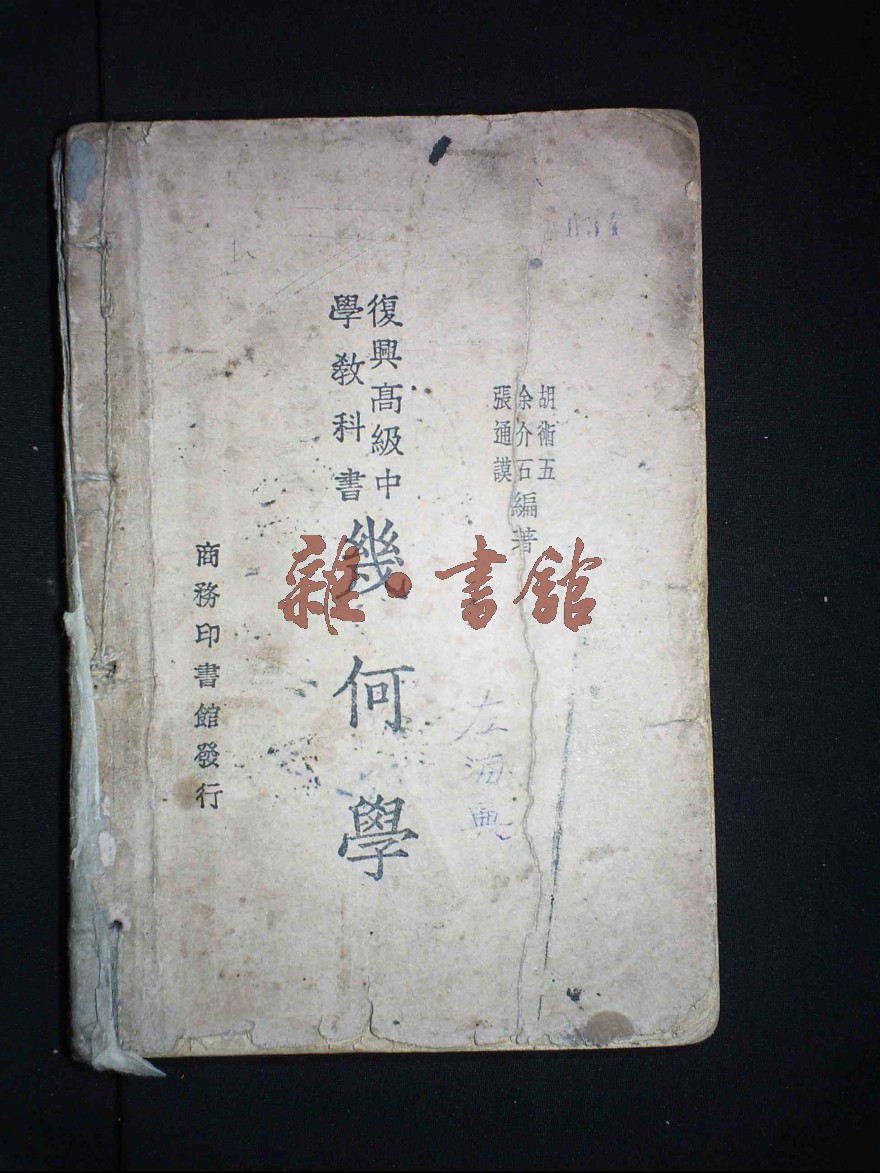 胡術五
余介石編著
張通謨
復興高級中
學教科書
幾何學
商務印書館發行
雜·書館
左海興